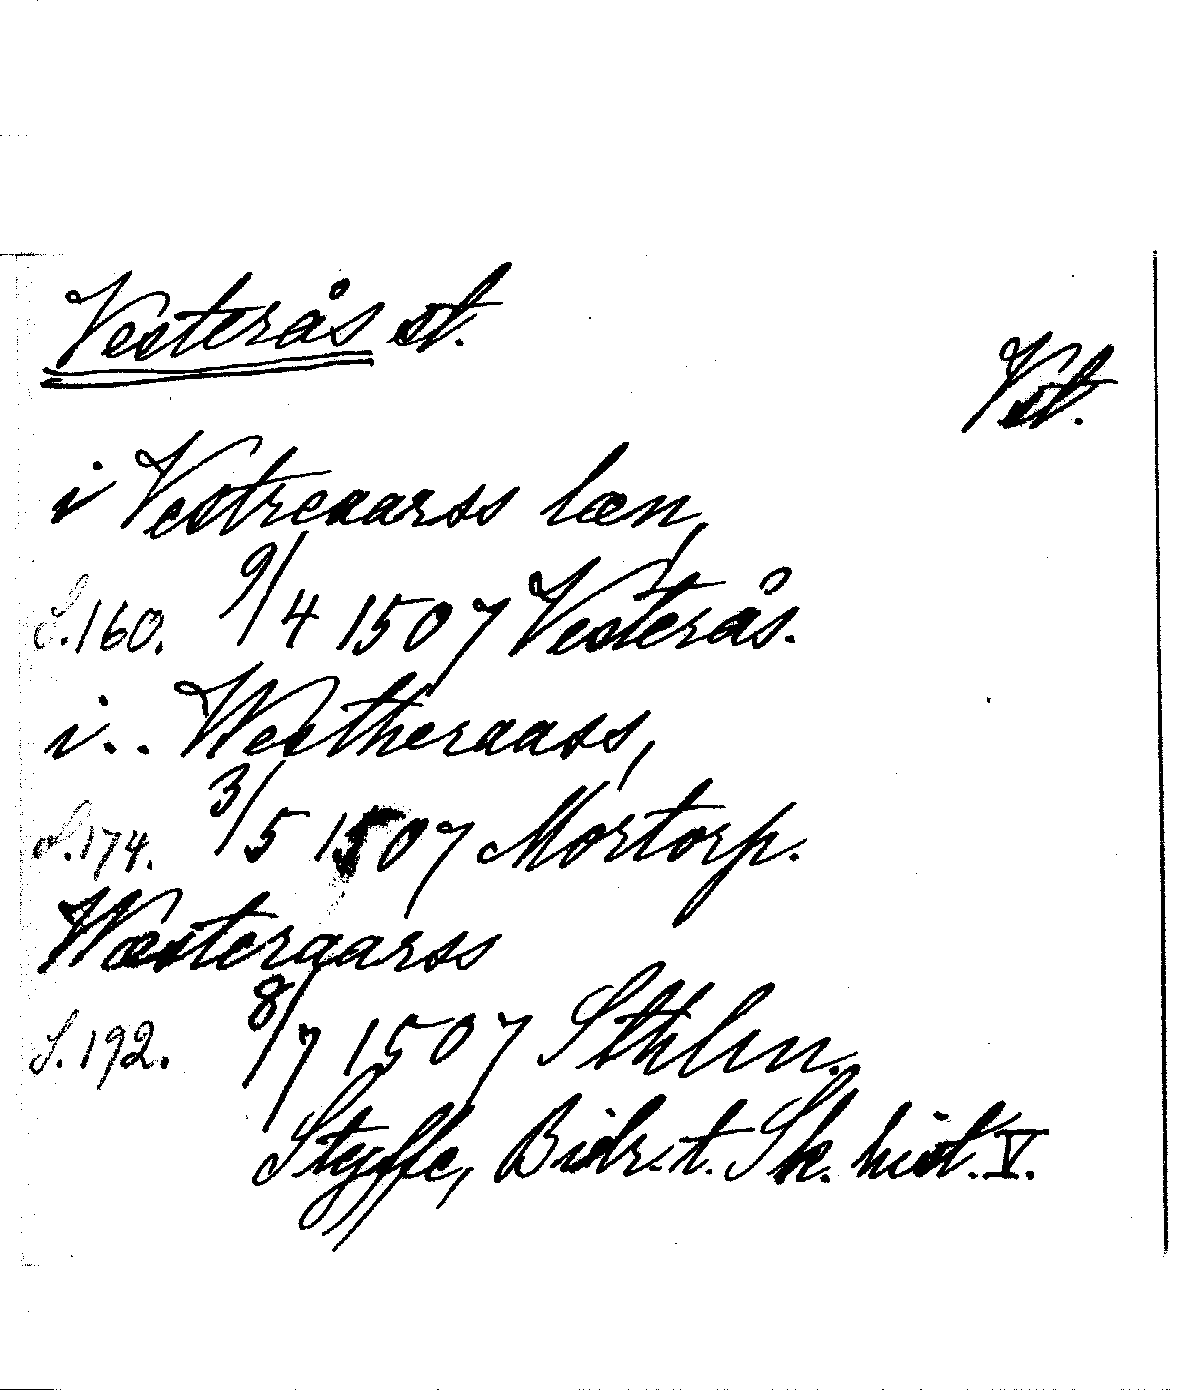 Vesterås st.
Vst.
i Vestreaarss læn,
S. 160. 9/4 1507 Vesterås.
i.. Westheraass,
S. 174. 3/5 1507 Mortorp.
Wæsteraarss
S. 192. 8/7 1507 Sthlm.
Styffe, Bidr. t. Sk. hist. V.